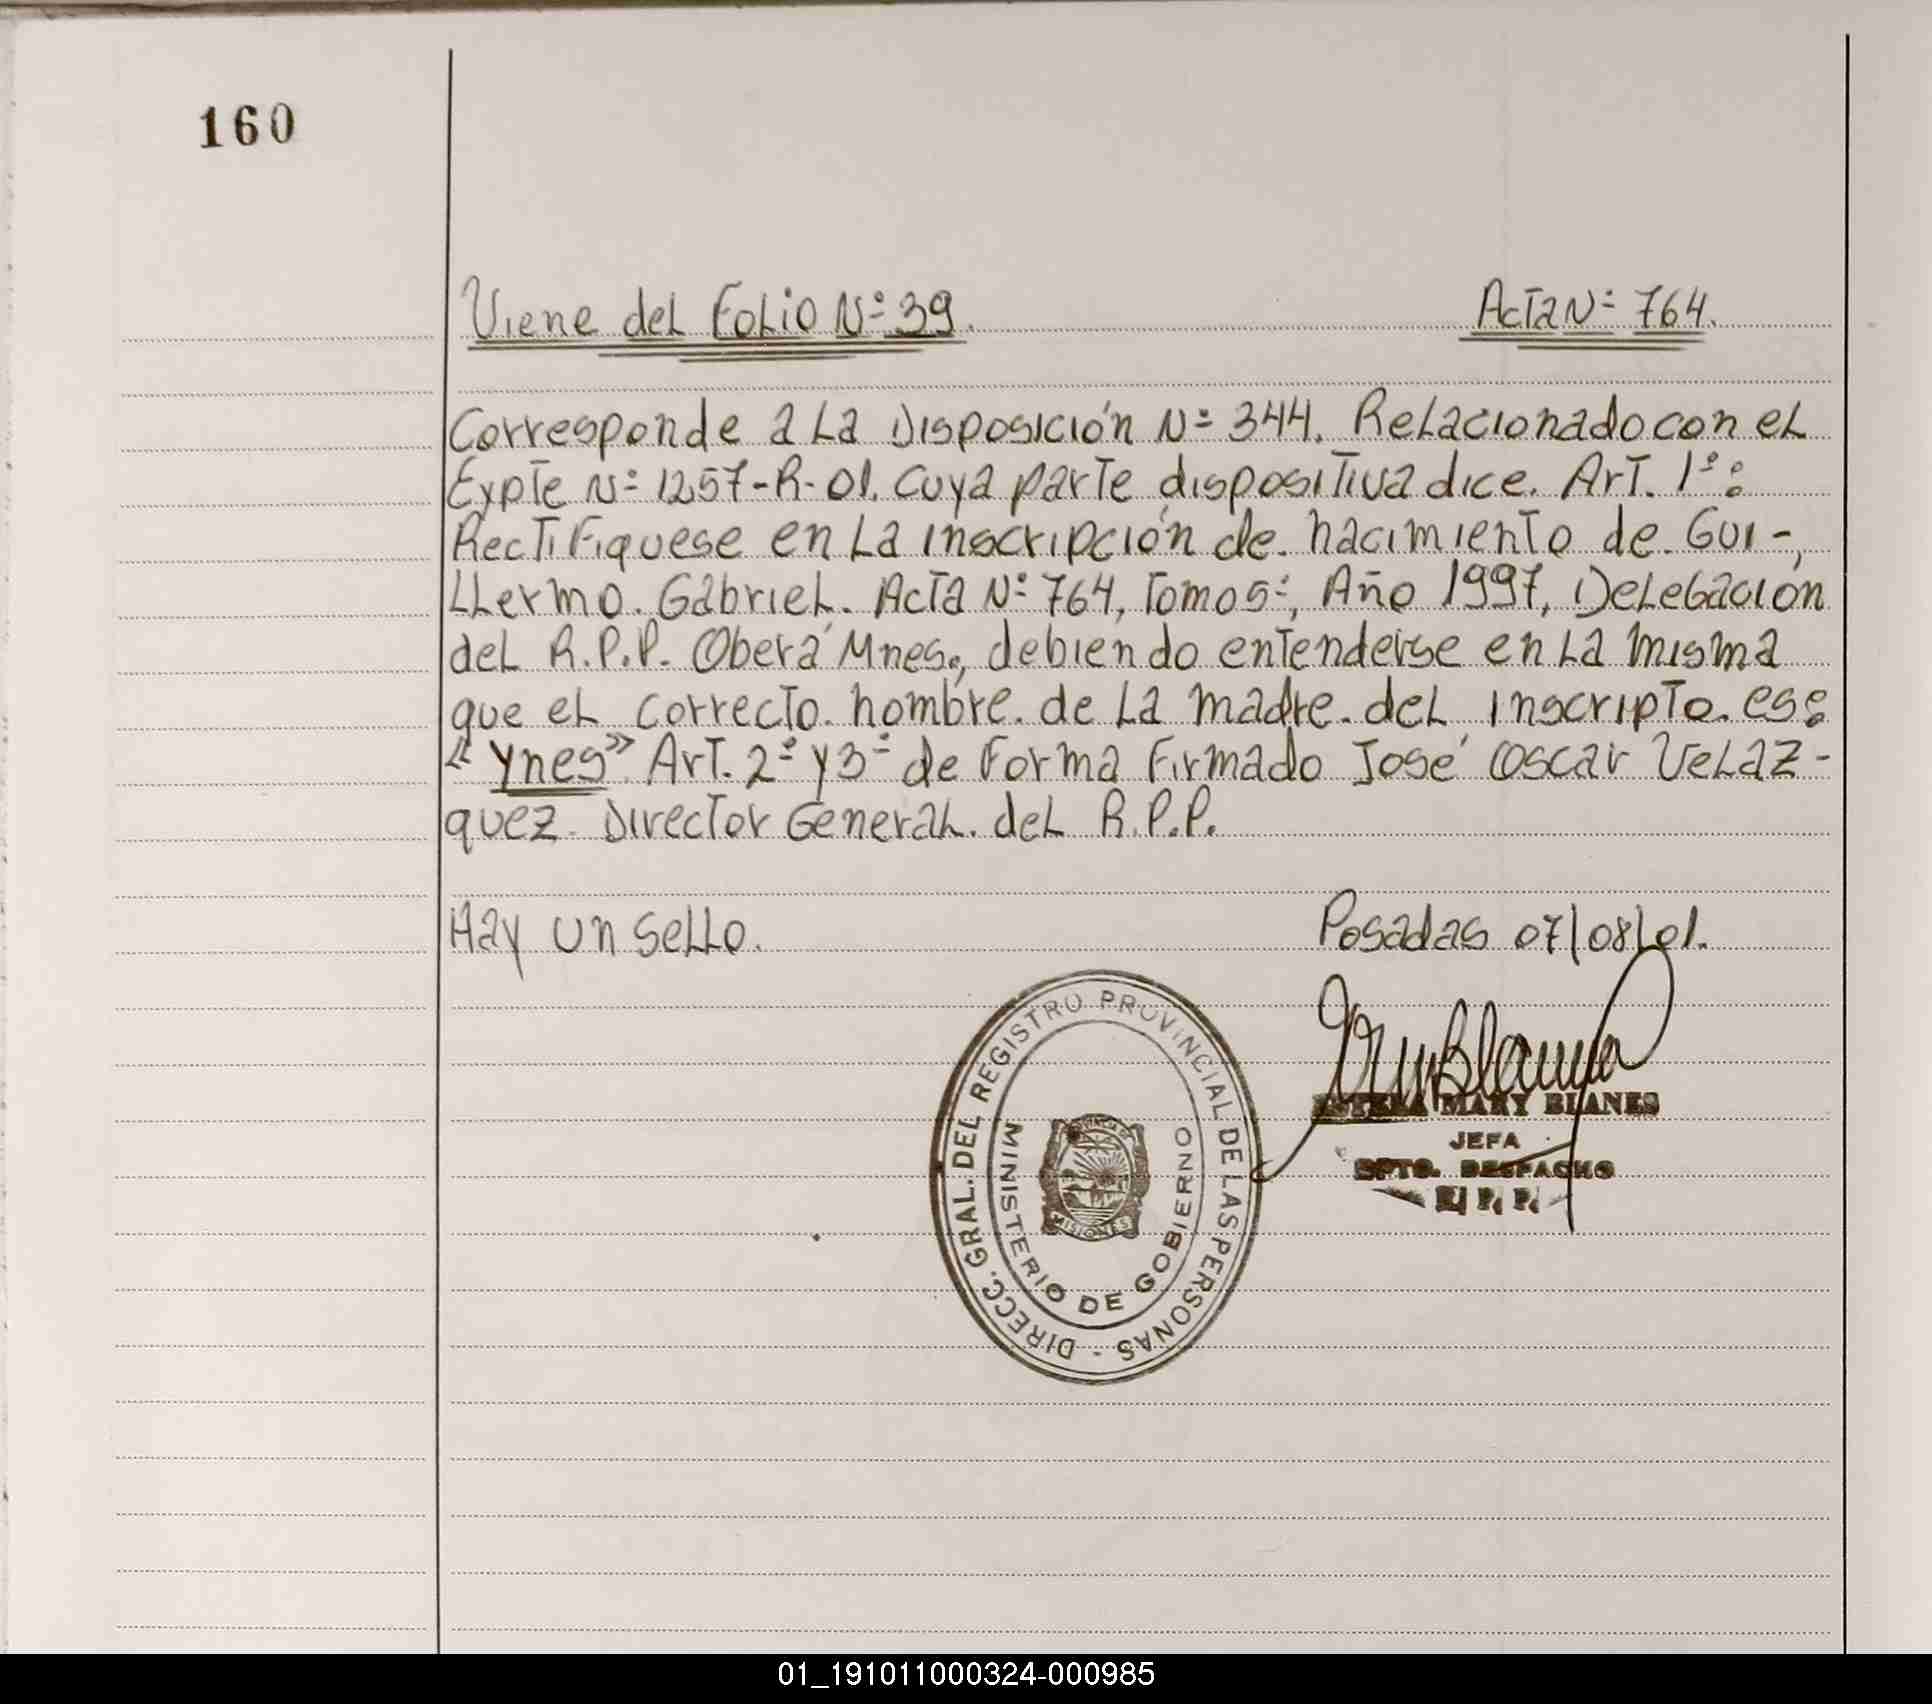 160
Viene del Folio Nº 39. Acta Nº 764.
Corresponde a la Disposición Nº 344. Relacionado con el
Expte Nº 1257-R-01. Cuya parte dispositiva dice. Art. 1º:
Rectifiquese en la inscripción de nacimiento de Gui-
llermo. Gabriel. Acta Nº 764, Tomo 5º, Año 1997, Delegación
del R.P.P. Oberá Mnes., debiendo entenderse en la misma
que el correcto nombre de la madre del inscripto. es:
"Ynes" Art. 2º y 3º de Forma Firmado José Oscar Velaz-
quez. Director General. del R.P.P.
Hay un sello. Posadas 07/08/01.
DIRECC. GRAL. DEL REGISTRO PROVINCIAL DE LAS PERSONAS -
MINISTERIO DE GOBIERNO
PROVINCIA DE
MISIONES
ESTELA MARY BLANES
JEFA
DPTO. DESPACHO
R. P. P.
01_191011000324-000985